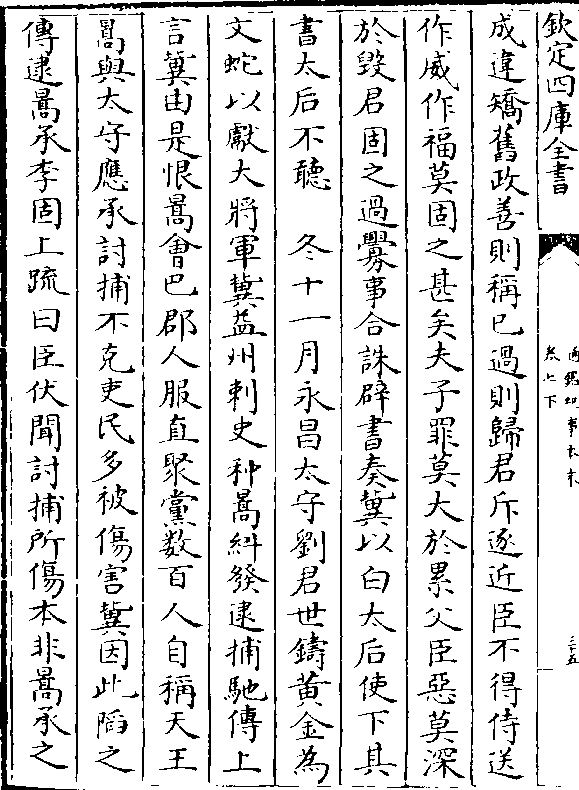 欽定四庫全書
通鑑紀事本末
卷七下
三五
成違矯舊政善則稱已過則歸君斥逐近臣不得侍送
作威作福莫固之甚矣夫子罪莫大於累父臣惡莫深
於毀君固之過釁事合誅辟書奏冀以白太后使下其
書太后不聽 冬十一月永昌太守劉君世鑄黃金為
文蛇以獻大將軍冀益州刺史种暠糾發逮捕馳傳上
言冀由是恨暠會巴郡人服直聚黨數百人自稱天王
暠與太守應承討捕不克吏民多被傷害冀因此陷之
傳逮暠承李固上䟽曰臣伏聞討捕所傷本非暠承之